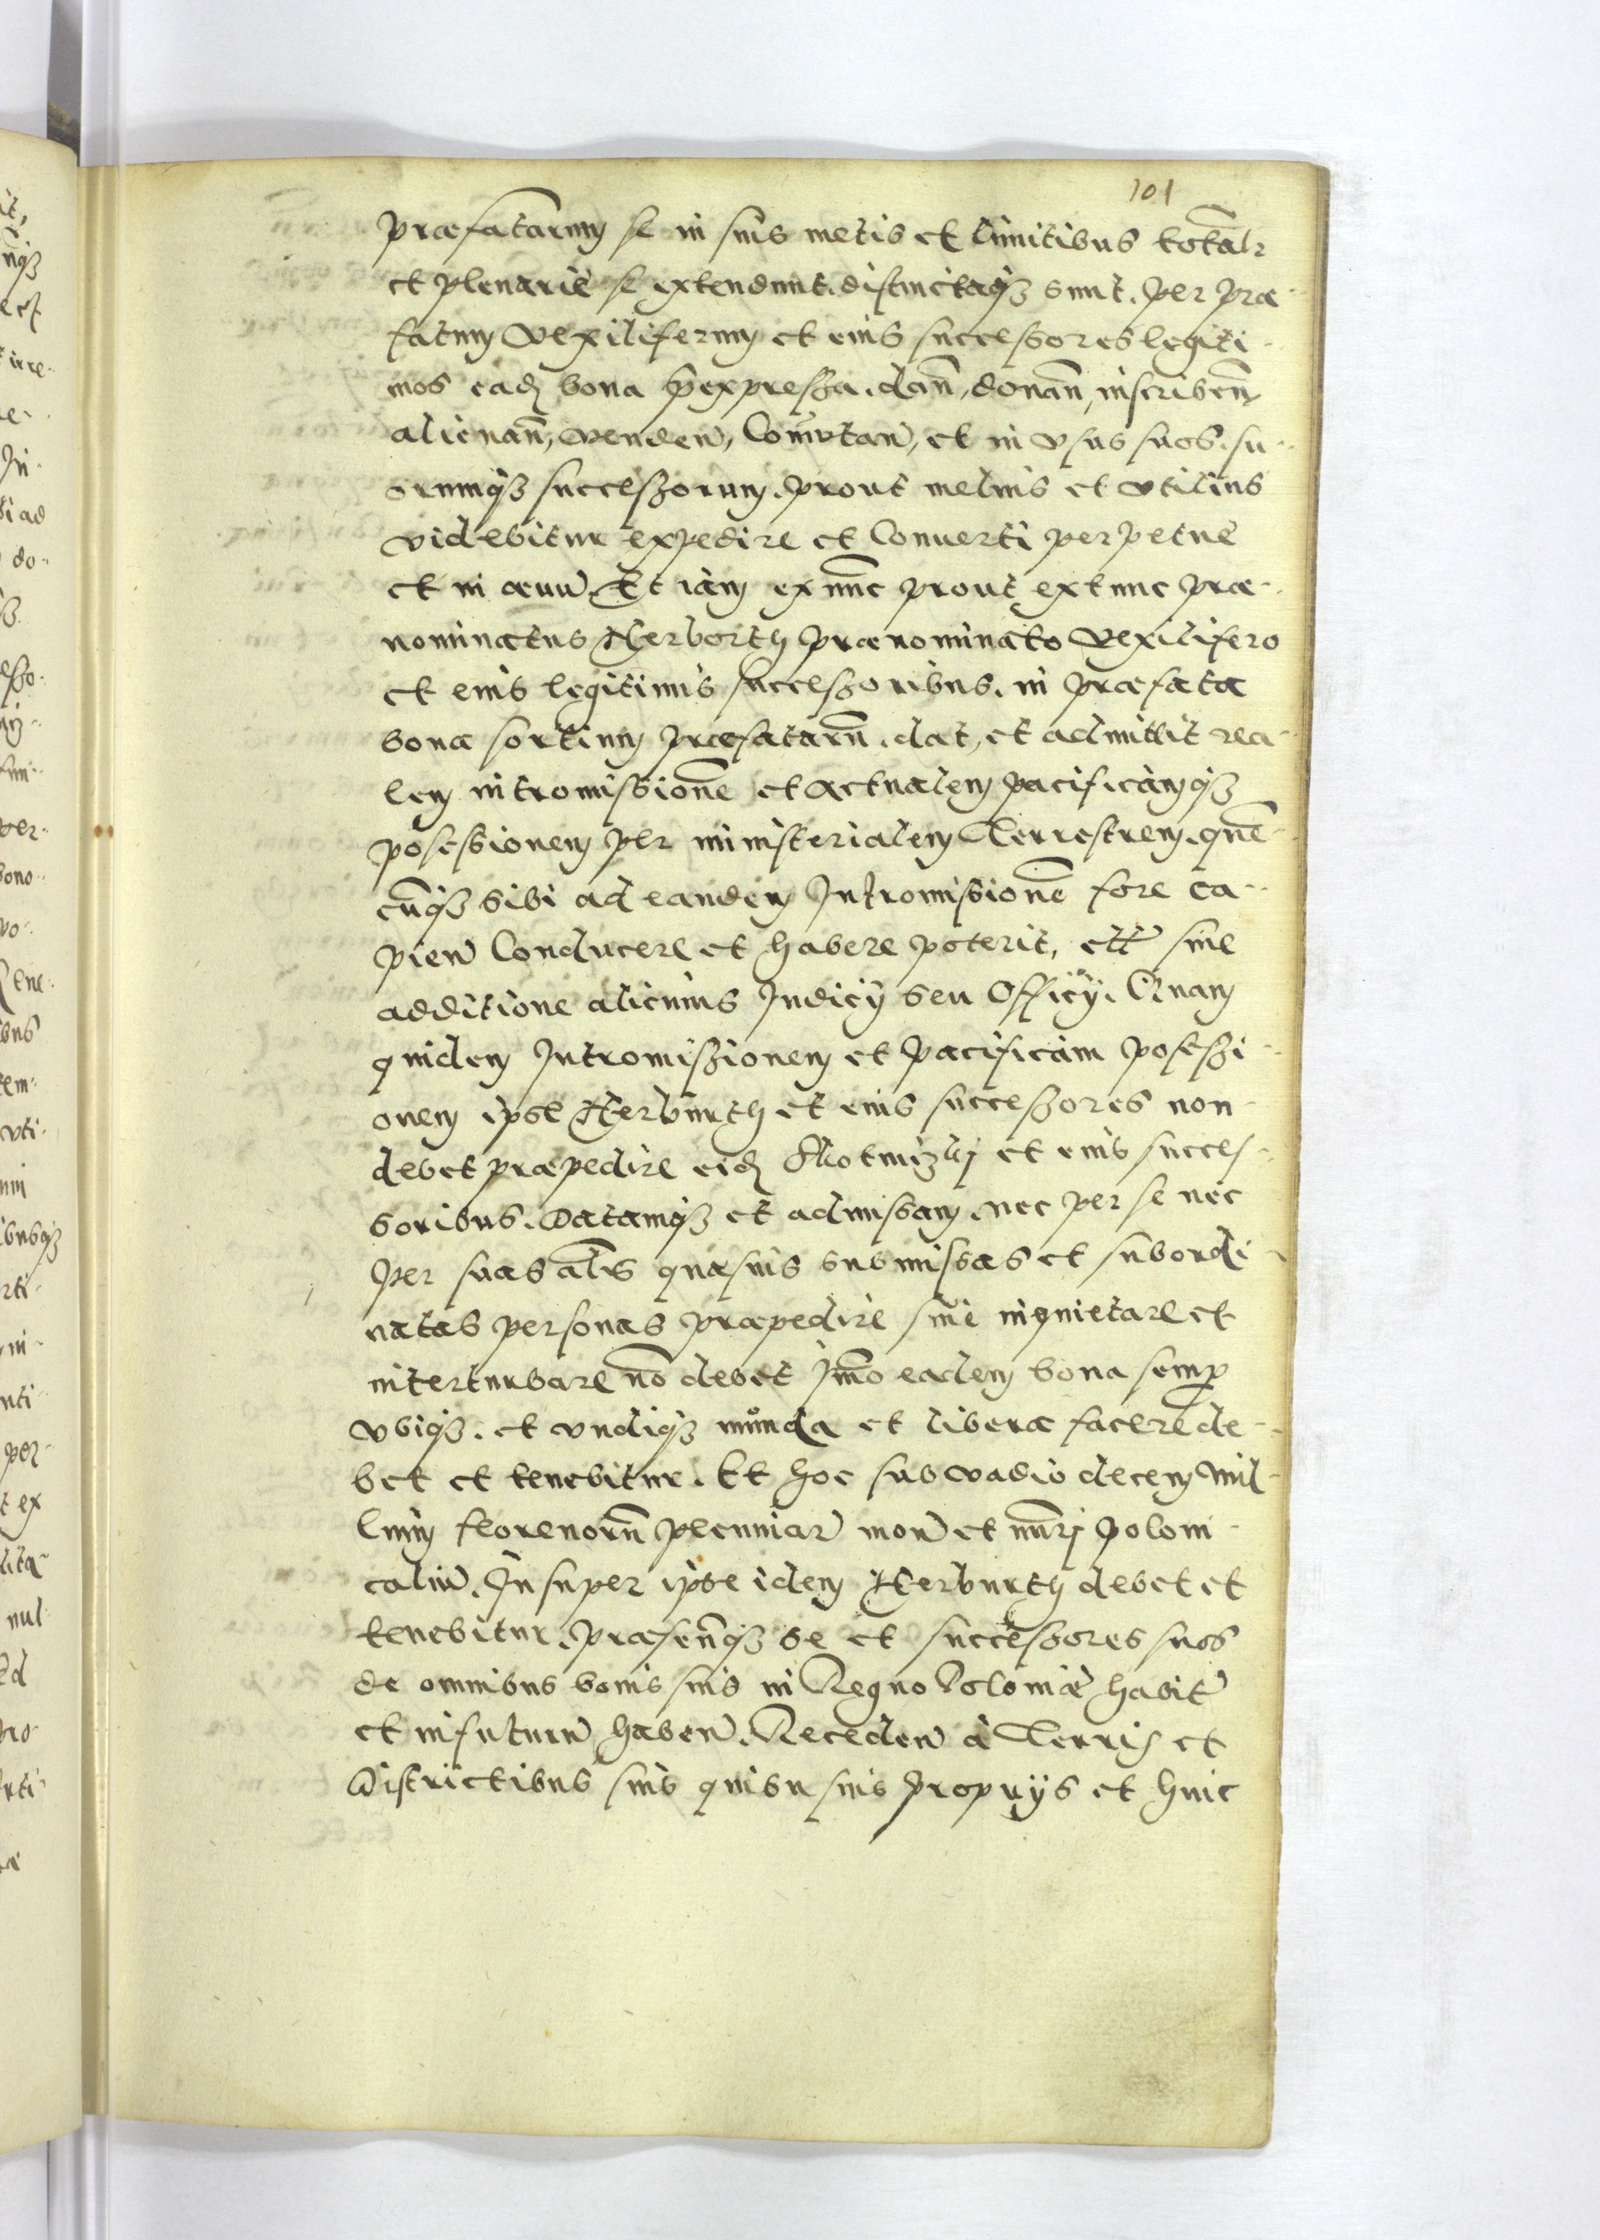 101
præfatarum se in suis metis et limitibus total:
et plenarie se extendunt. distinctaq; sunt. per præ-
fatum Vexiliferum et eius successores legiti-
mos eadē bona p̄expressa. dan̄, donan̄, inscriben̄
alienan̄, venden̄, Com̄utan̄, et in vsus suos. su-
orumq; successorum. prout melius et vtilius
videbitur expedire et Conuerti perpetue
et in æuū. Et iam ex nunc prout extunc præ-
nominatus Herborth prænominato Vexilifero
et eius legitimis successoribus. in præfata
bona sortium præfatarū. dat, et admittit rea-
lem intromissionē et actualem pacificamq;
posessionem per ministerialem Terrestrem. quē-
cūq; sibi ad eandem Intromissionē fore ca-
pien̄ Conducere et habere poterit, sine
additione alicuius Iudicÿ seu Officÿ. Quam
quidem Intromissionem et pacificam posessi-
onem ipse Herburth et eius successores non
debet præpedire eidē et eius succes-
soribus. Datamq; et admissam. nec per se nec
per suas al̄s quasuis submissas et subordi-
natas personas præpedire siue inquietare et
interturbare nō debet Im̄o eadem bona semp̄
vbiq;. et vndiq; munda et libera facere de-
bet et tenebitur. Et hoc sub vadio decem mil-
lium florenorū pecuniar̄ mon̄ et nūrj poloni-
caliū. Insuper ipse idem Herburth debet et
tenebitur. præsen̄q; se et successores suos
de omnibus bonis suis in Regno Poloniæ habit̄
et in futurū haben̄. Receden̄ à Terris et
Districtibus suis quibusuis proprÿs et huic